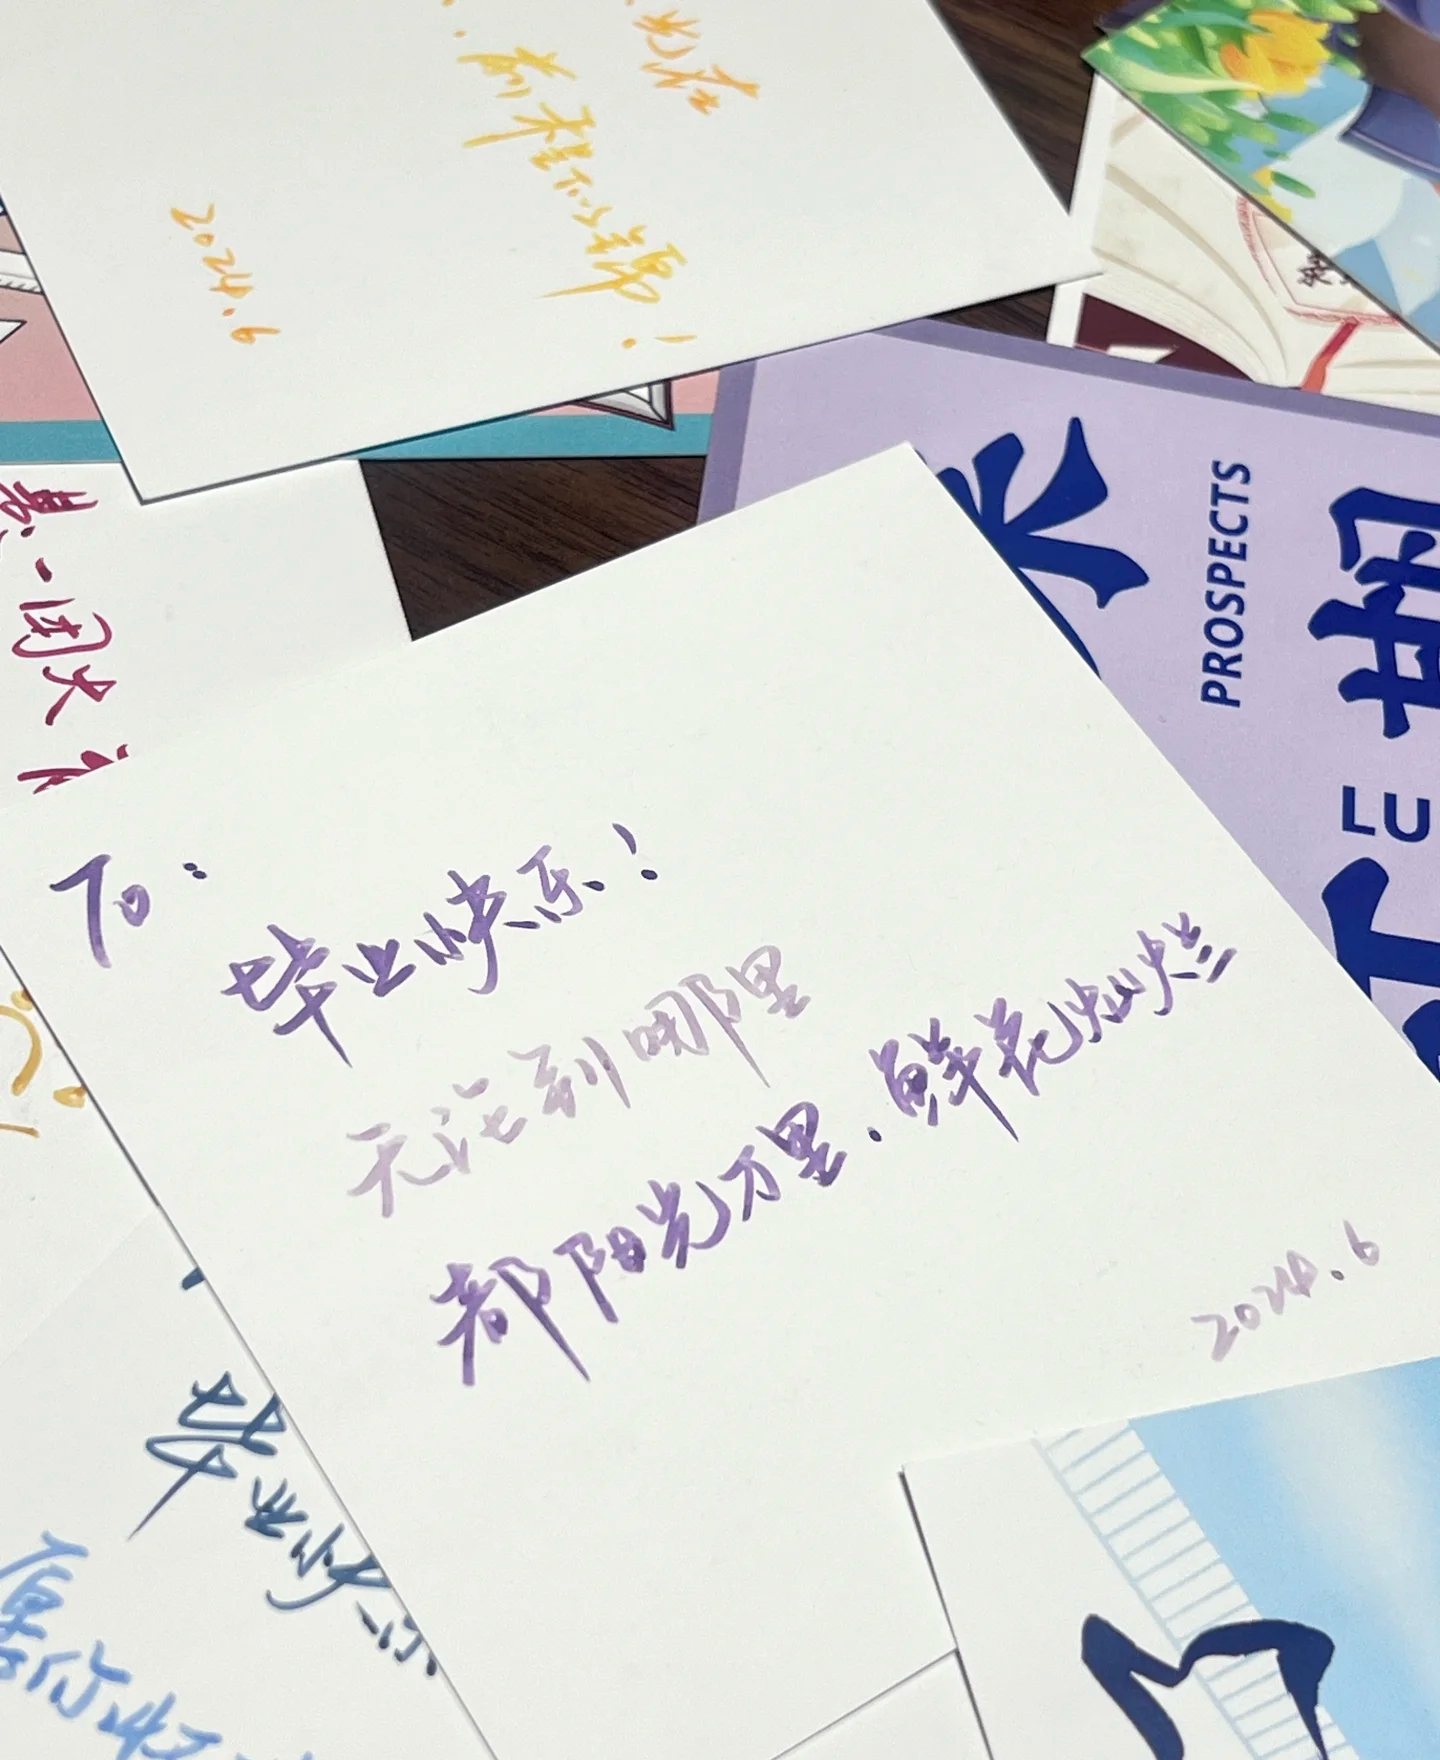 光在
前程似锦!
2024.6
一团火
To:
毕业快乐!
无论到哪里
都阳光万里.鲜花灿烂
2024.6
毕业快乐
愿你
PROSPECTS